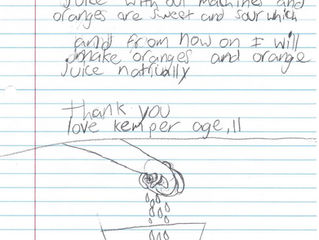 juice with out machines and
oranges are sweet and sour which
and from now on I will
make oranges and orange
juice natrually
thank you
love kemper age,11